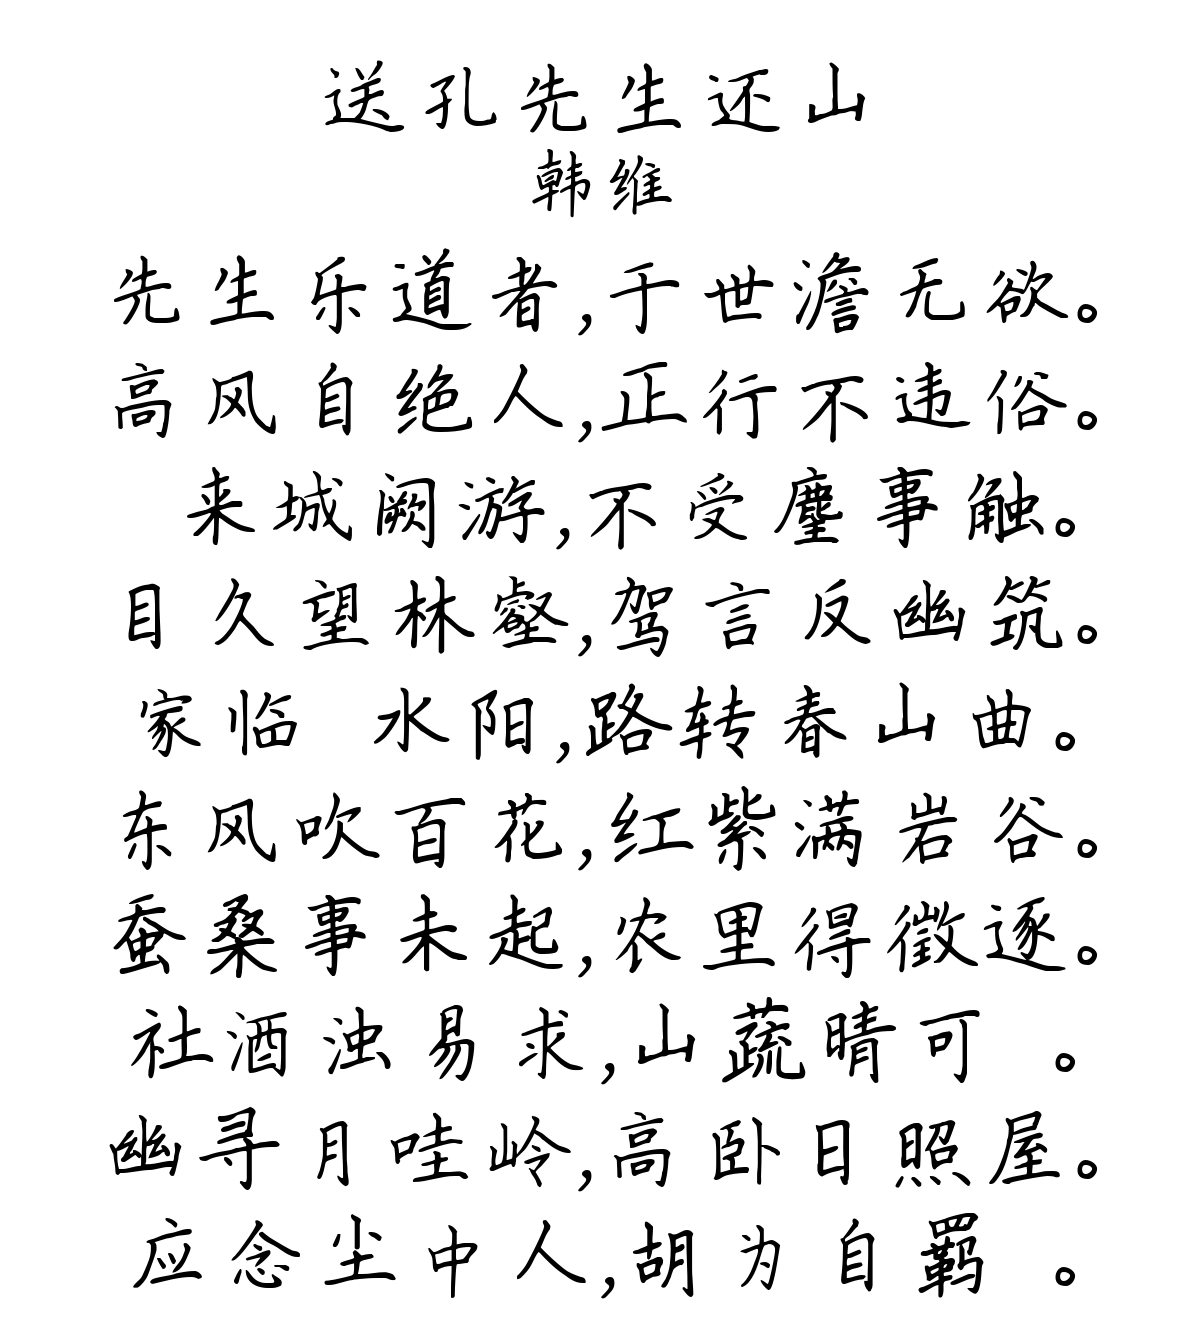 送孔先生还山
韩维
先生乐道者,于世澹无欲。
高风自绝人,正行不违俗。
来城阙游,不受麈事触。
目久望林壑,驾言反幽筑。
家临 水阳,路转春山曲。
东风吹百花,红紫满岩谷。
蚕桑事未起,农里得徵逐。
社酒浊易求,山蔬晴可 。
幽寻月哇岭,高卧日照屋。
应念尘中人,胡为自羁 。